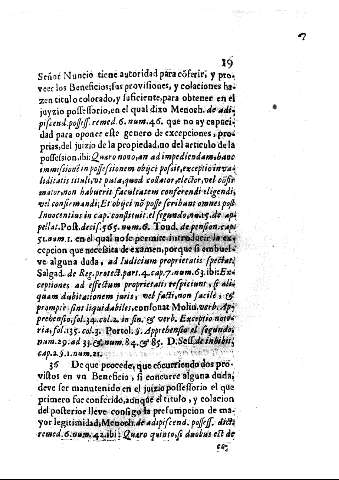 19
Señor Nuncio tiene autoridad para cõferir, y pro-
veer los Beneficios; sus provisiones, y colaciones ha-
zen titulo colorado, y suficiente, para obtener en el
juyzio possessorio, en el qual dixo Menoch. de adi-
piscend. possess. remed. 6. num. 46. que no ay capaci-
dad para oponer este genero de excepciones, pro-
prias, del juizio de la propiedad, no del articulo de la
possession, ibi: Quæro nono, an ad impediendam, hanc
immissionē in possessionem obijci possit, exceptio inva-
liditatis tituli, ut puta, quod collator, elector, vel cõfir
mator, non habuerit facultatem conferendi eligendi,
vel confirmandi; Et obijci nõ posse scribunt omnes post
Innocentius in cap. constituit. el segundo, num. 5. de ap-
pellat. Post. decis. 565. num. 6. Tond. de pension. cap.
51. num. 1. en el qual no se permite introducir la ex-
cepcion que necessita de examen, porque si embuel-
ve alguna duda, ad Iudicium proprietatis spectat,
Salgad. de Reg. protect. part. 4. cap. 7. num. 63. ibi: Ex-
ceptiones ad effectum proprietatis respiciunt, si ali-
quam dubitationem juris, vel facti, non facile, &
prompte sint liquidabiles, consonat Molin. verb. Ap-
prehensio, fol. 34. col. 2. in fin. & verb. Exceptio neces-
ria, fol. 135. col. 3. Portol. §. Apprehensio el segundo,
num. 29. ad 33. & num. 84. & 85. D. Sess. de inhibit.
cap. 2. §. 1. num. 21.
36 De que procede, que cõcurriendo dos pro-
vistos en vn Beneficio, si concurre alguna duda,
deve ser manutenido en el juizio possessorio el que
primero fue conferido, aunque el titulo, y colacion
del posterior lleve consigo la presumpcion de ma-
yor legitimidad, Menoch. de adipiscend. possess. dicto
remed. 6. num. 42. ibi: Quæro quinto, si duobus est de